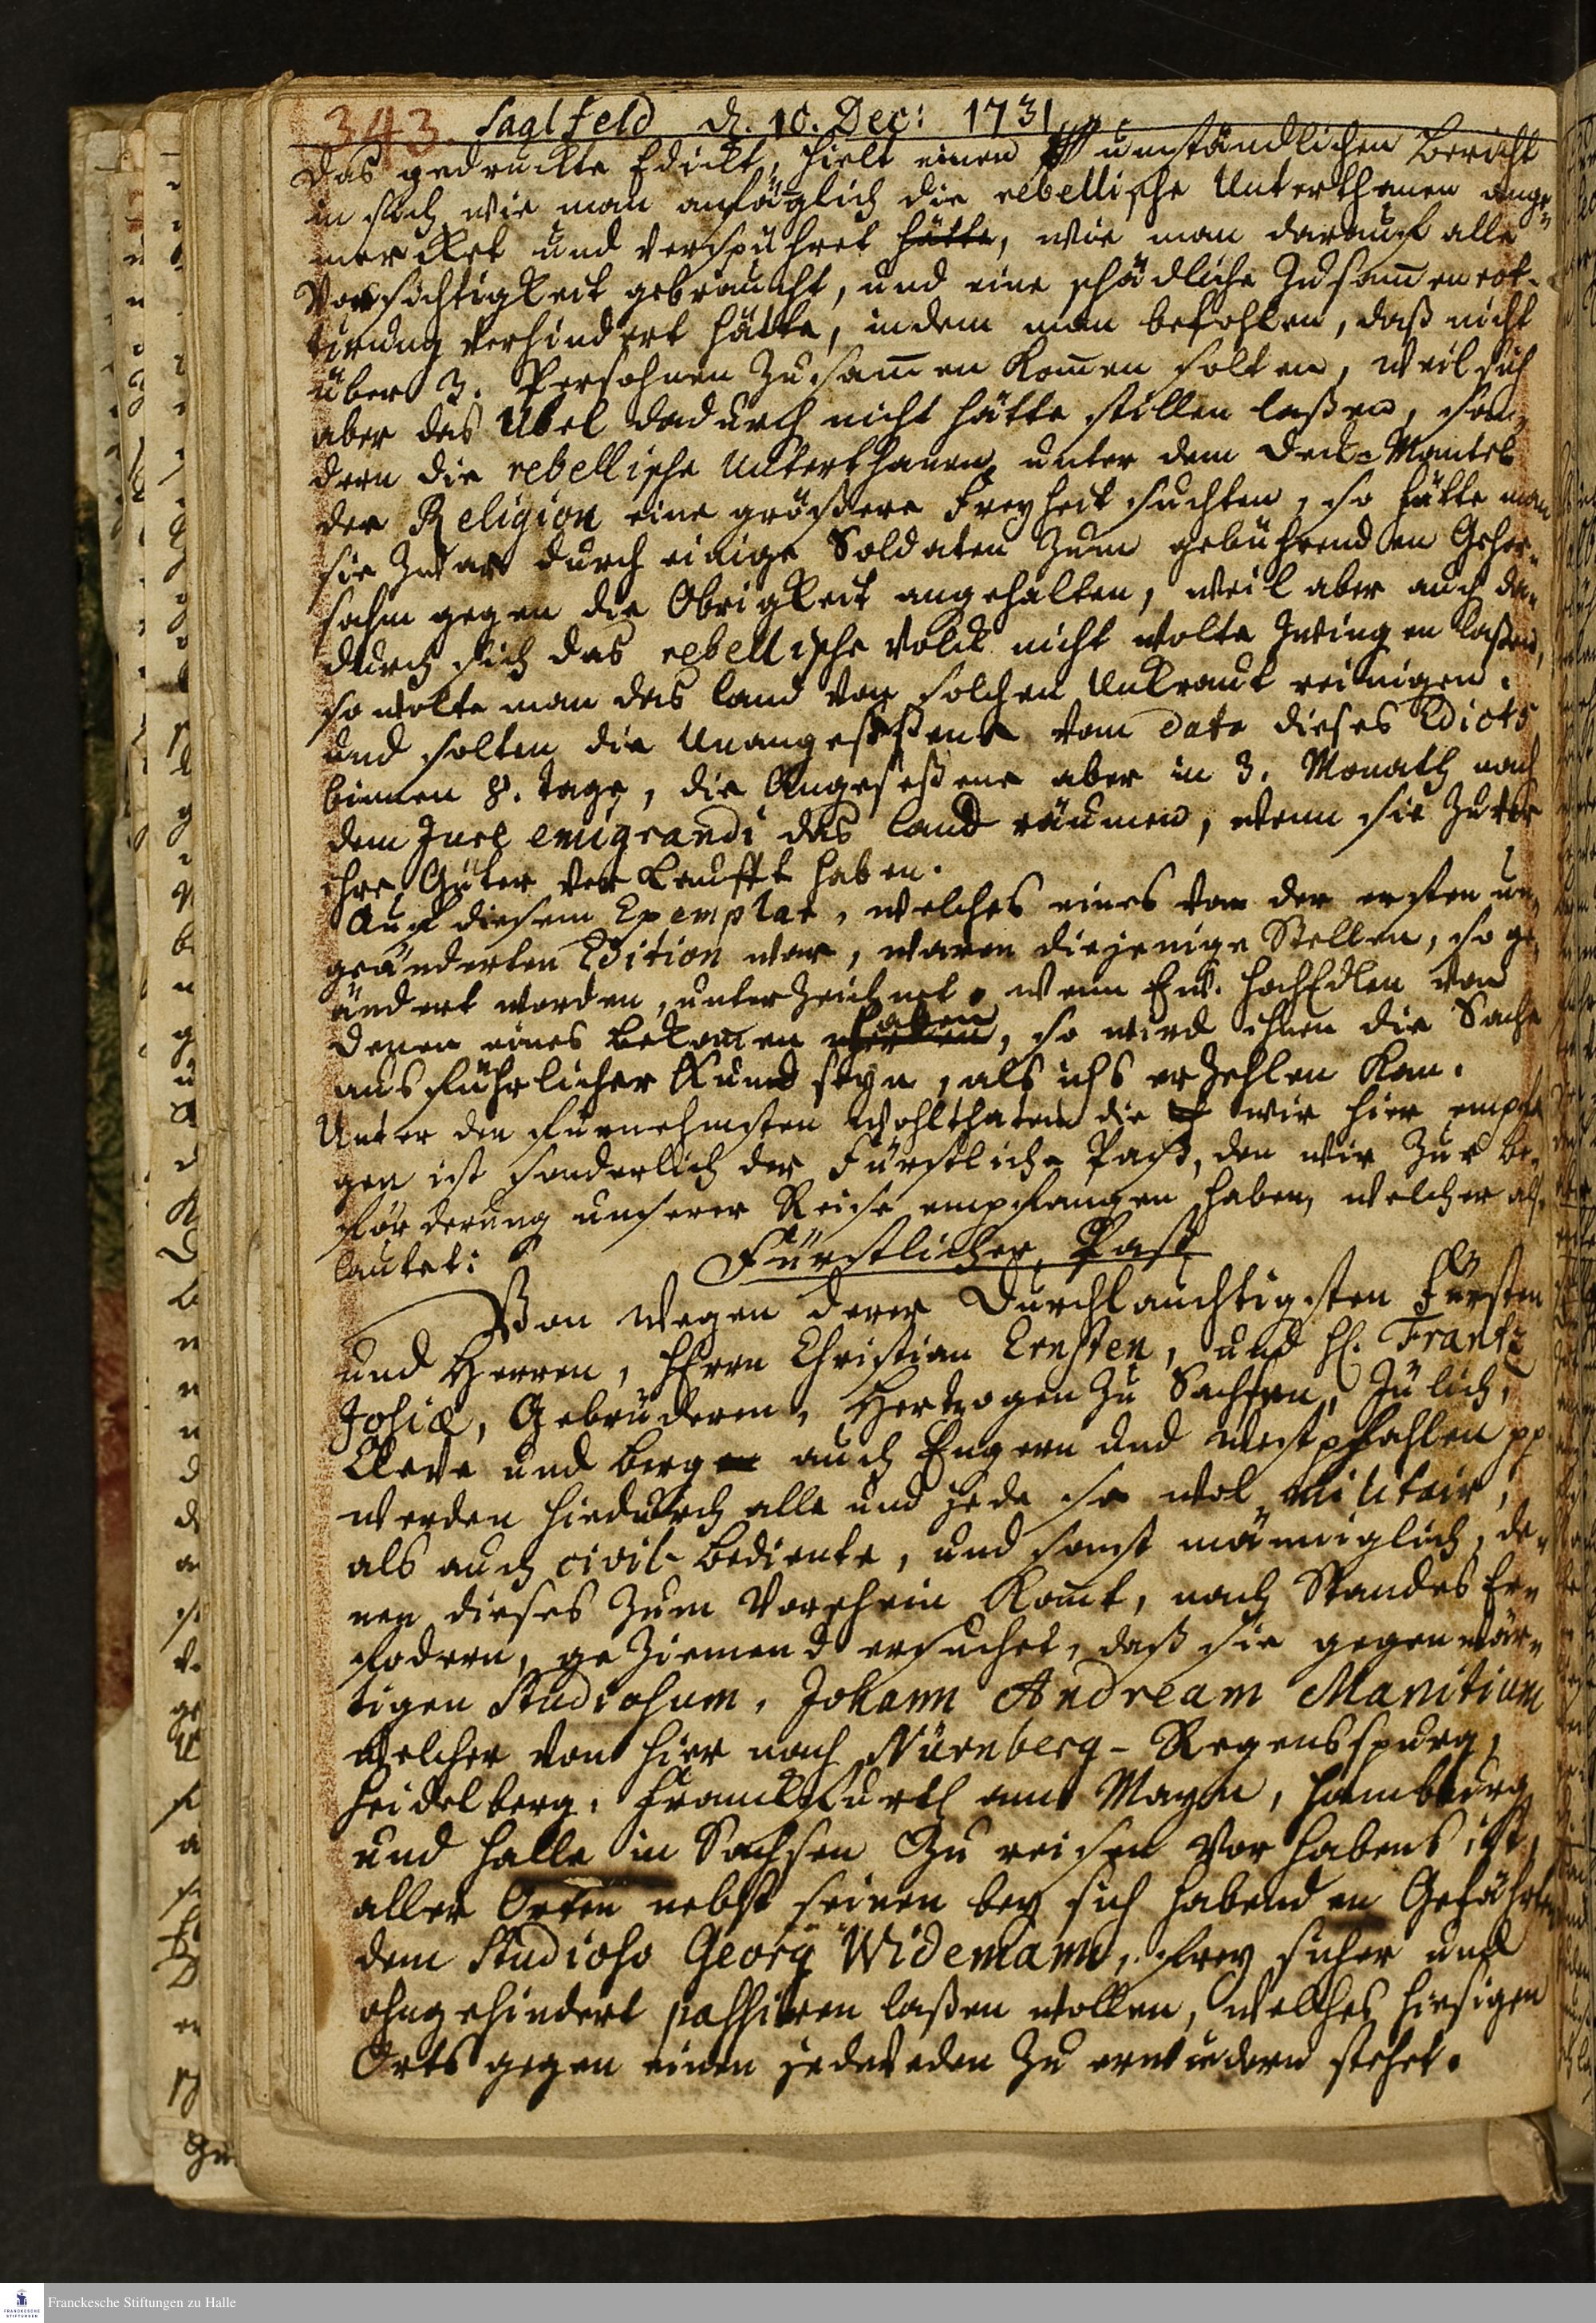 343. Saalfeld d. 10. Dec: 1731
Das gedruckte Edickt, hielt einen umständlichen Bericht
in sich, wie man anfänglich die rebellische Unterthanen ange„
mercket und verspühret hätte, wie man darauf alle
Vorsichtigkeit gebraucht, und eine schädliche Zusam̄enrot„
tirung verhindert hätte, indem man befohlen, daß nicht
über 3. Persohnen Zusam̄en kom̄en solten, weil sich
aber das Übel dadurch nicht hätte stillen laßen, son„
dern die rebellische Unterthanen unter dem Deck-Mantel
der Religion eine größere Freyheit suchten, so hätte man
sie zwar durch einige Soldaten zum gebührenden Gehor„
sahm gegen die Obrigkeit angehalten, weil aber auch da„
durch sich das rebellische Volck nicht wolte zwingen laßen,
so wolte man das Land von solchen Unkraut reinigen.
und solten die Unangeseßene vom dato dieses Edicts
binnen 8. Tage, die Angeseßene aber in 3. Monath nach
dem Jure emigrandi das Land räumen, wenn sie zuvor
ihre Güter verkaufft haben.
Auf diesem Exemplar, welches eines von der ersten un„
geänderten Edition war, waren diejenige Stellen, so ge„
ändert worden, unterzeichnet. wenn Ew. HochEdlen von
denen eines bekom̄en haben, so wird ihnen die Sache
ausführlicher kund seyn, als ichs erzehlen kan.
Unter den fürnehmsten Wohlthaten die wir hier empfa„
gen ist sonderlich der Fürstliche Paß, den wir zur Be„
förderung unserer Reise empfangen haben, welcher also
lautet:
Fürstlicher Paß
Von wegen derer Durchlauchtigsten Fürsten
und Herren, Herrn Christian Ernsten, und H. Frantz
Josiæ, Gebrüderen, Hertzogen zu Sachsen, Jülich,
Cleve und Berg auch Engern und Westphahlen pp
werden hiedurch alle und jede so wol militair,
als auch civil-Bediente, und sonst männiglich, de„
nen dieses zum Vorschein kom̄t, nach Standes Er„
fodern, geziemend ersuchet, daß sie gegenwär„
tigen Studiosum, Johann Andream Manitium
welcher von hier nach Nürnberg-Regensspurg,
Heidelberg, Franckfurth am Mayn, Hamburg
und Halle in Sachsen zu reisen Vorhabens ist,
aller Orten nebst seinen bey sich habenden Gefährten
dem Studioso Georg Widemann, frey sicher und
ohngehindert passiren laßen wollen, welches hiesigen
Orts gegen einen jedweden zu erwiedern stehet.
Franckesche Stiftungen zu Halle
FRANCKESCHE
STIFTUNGEN